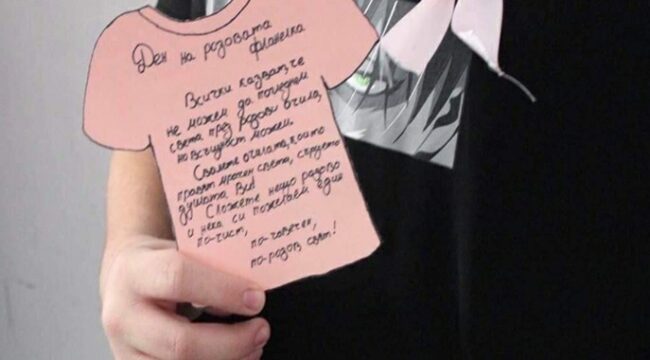 Ден на розовата
фланелка
Всички казват, че
не можем да погледнем
света през розови очила,
но всъщност можем.
Свалете очилата, които
правят мрачен света, сърцето
душата Ви!
Сложете нещо розово
и нека си пожелаем един
по-чист,
по-човечен,
по-розов свят!